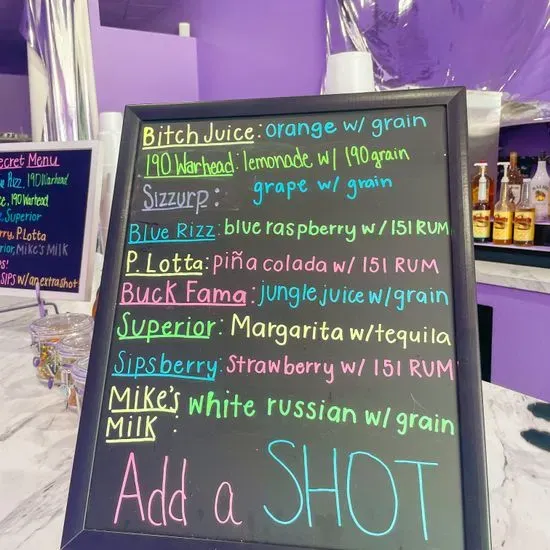 Bitch Juice: orange w/ grain
190 Warhead: lemonade w/ 190 grain
Sizzurp: grape w/ grain
Blue Rizz: blue raspberry w/ 151 RUM
P. Lotta: piña colada w/ 151 RUM
Buck Fama: jungle juice w/ grain
Superior: Margarita w/ tequila
Sipsberry: Strawberry w/ 151 RUM
Mike's white russian w/ grain
Milk :
Add a SHOT
ecret Menu
Rizz, 190 Warhead
, 190 Warhead
, Superior
, P. Lotta
, Mike's Milk
SIPS w/ an extra shot